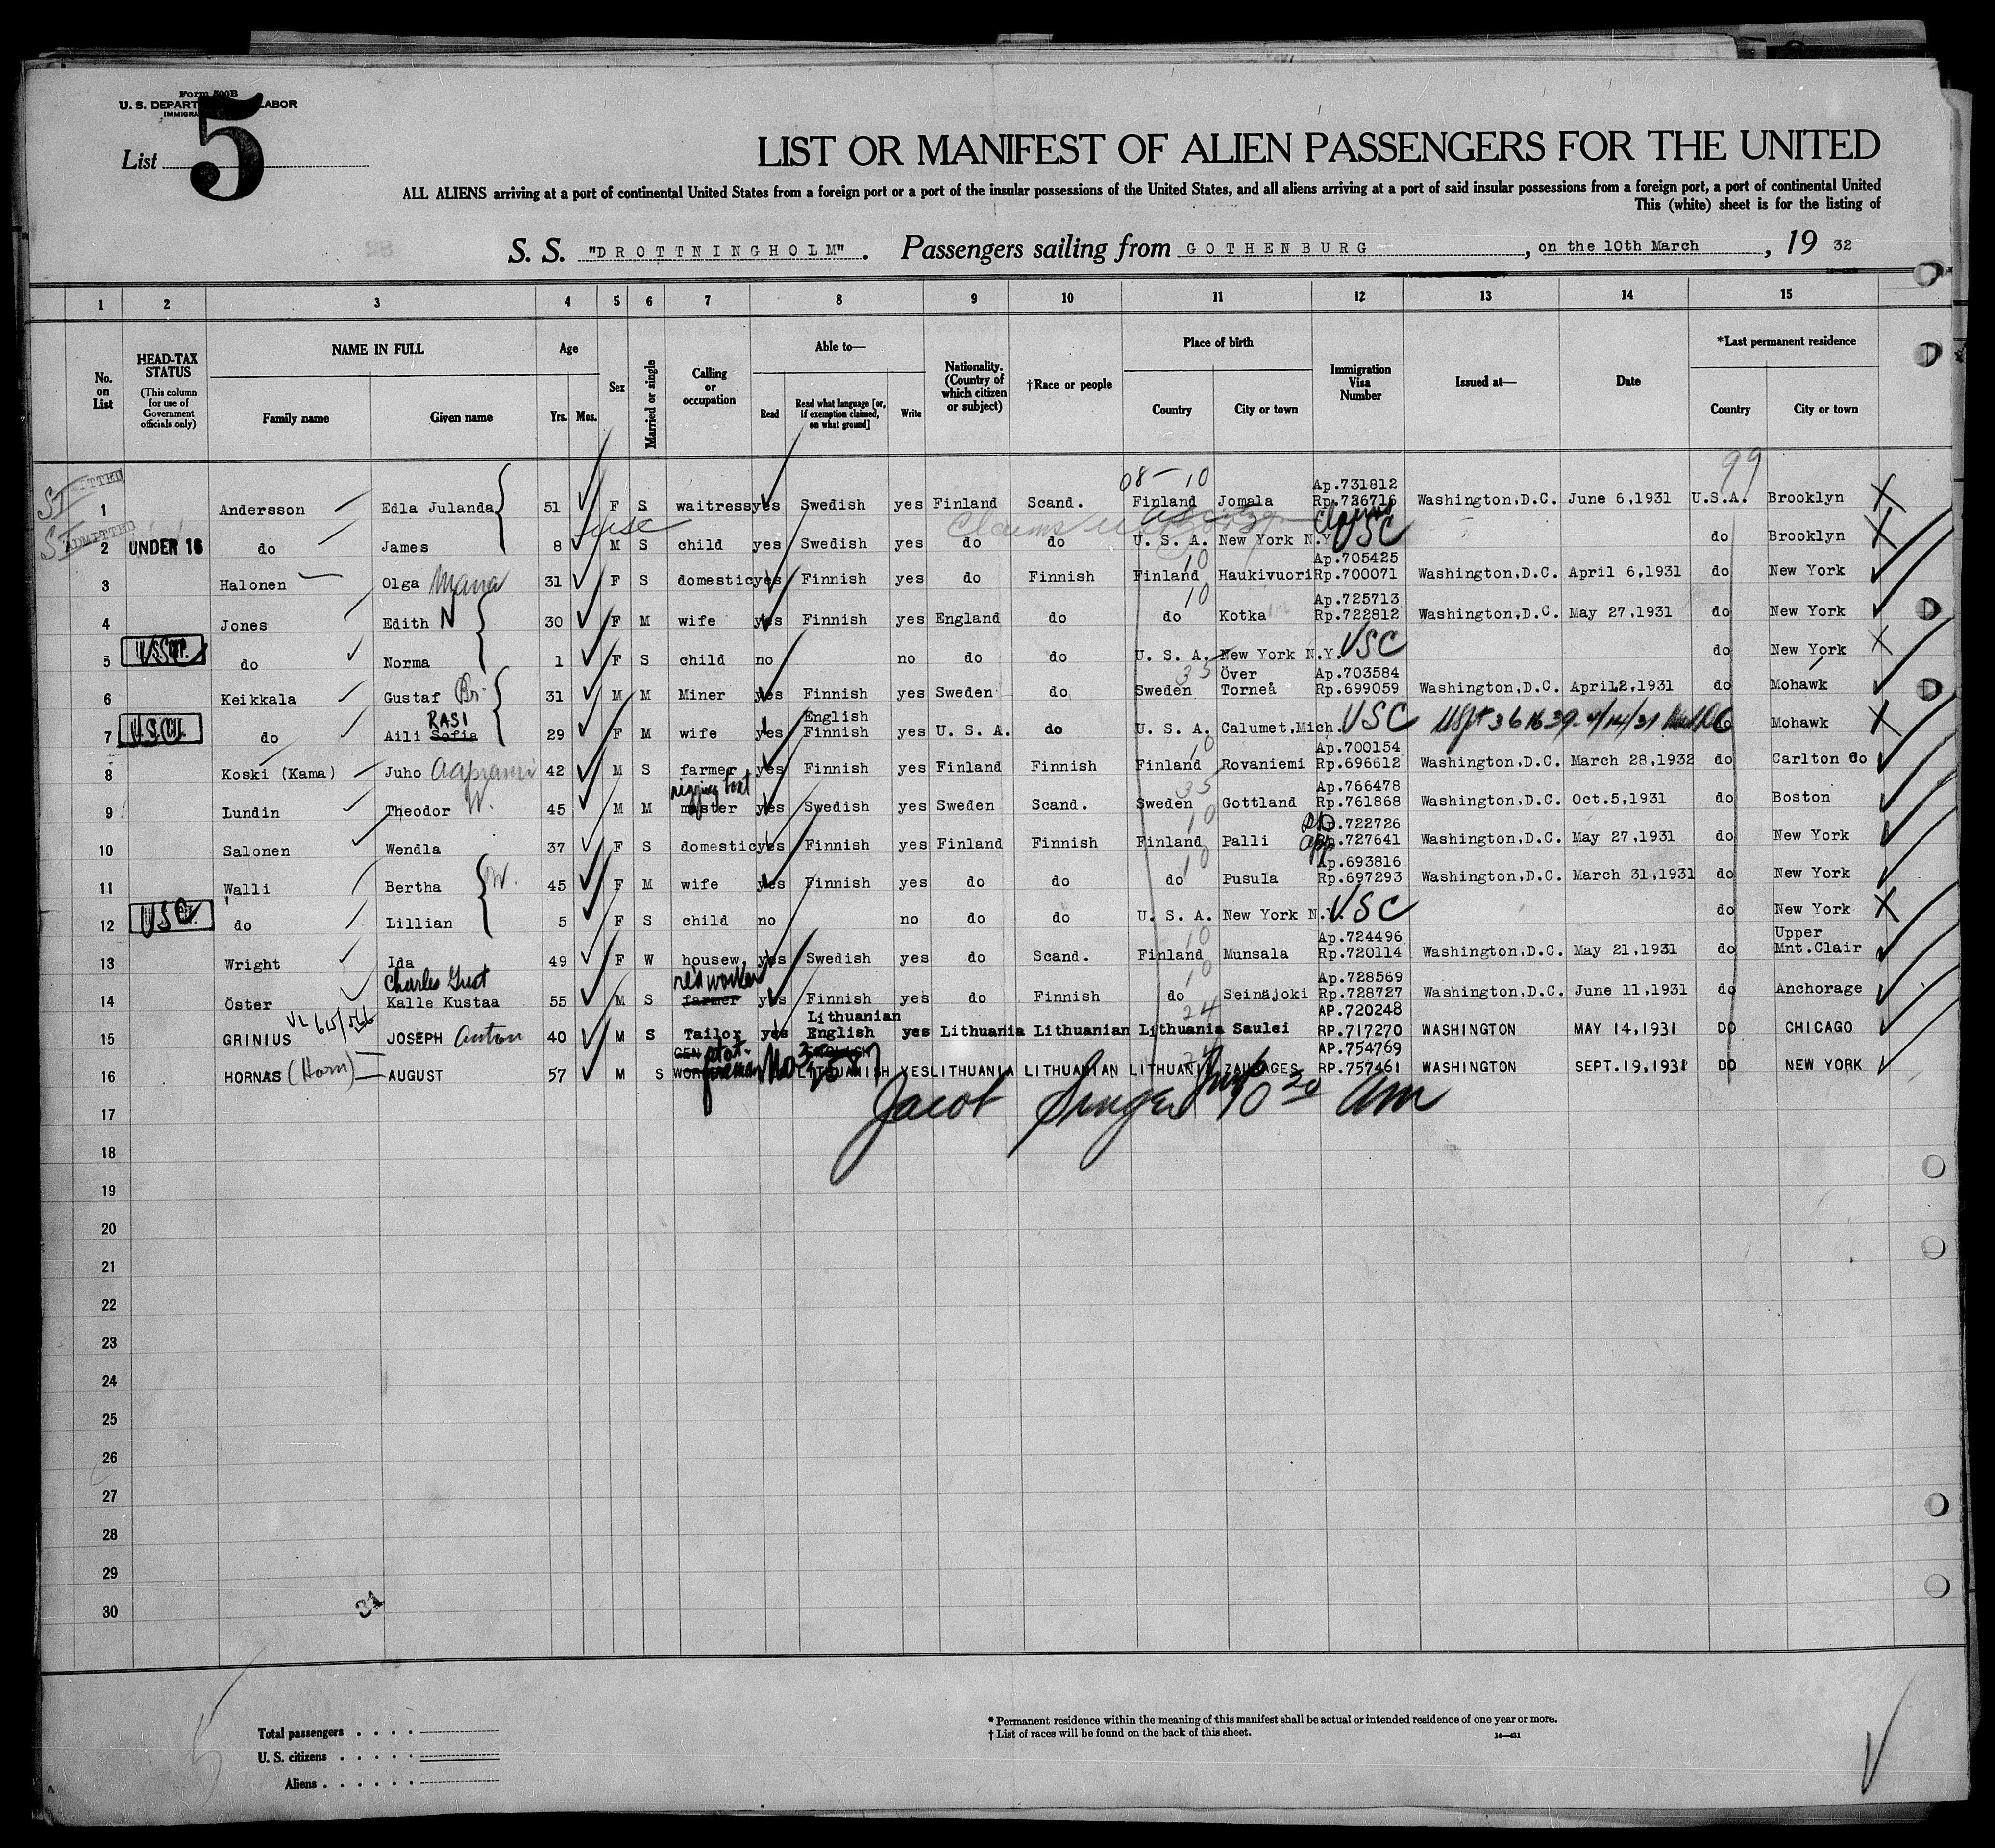 Form 500B
U. S. DEPART LABOR
IMMIGRA
List 5
LIST OR MANIFEST OF ALIEN PASSENGERS FOR THE UNITED
ALL ALIENS arriving at a port of continental United States from a foreign port or a port of the insular possessions of the United States, and all aliens arriving at a port of said insular possessions from a foreign port, a port of continental United
This (white) sheet is for the listing of
S. S. "DROTTNINGHOLM". Passengers sailing from GOTHENBURG, on the 10th March, 19 32
1 2 3 4 5 6 7 8 9 10 11 12 13 14 15
No. on List
HEAD-TAX STATUS (This column for use of Government officials only)
NAME IN FULL Family name Given name
Age Yrs. Mos.
Sex
Married or single
Calling or occupation
Able to— Read Read what language [or, if exemption claimed, on what ground] Write
Nationality. (Country of which citizen or subject)
†Race or people
Place of birth Country City or town
Immigration Visa Number
Issued at—
Date
*Last permanent residence Country City or town
08-10 99
ADMITTED 1 Andersson Edla Julanda 51 F S waitress yes Swedish yes Finland Scand. Finland Jomala Ap.731812 Rp.726716 Washington,D.C. June 6,1931 U.S.A. Brooklyn
USC Claims Claims
ADMITTED 2 UNDER 16 do James 8 M S child yes Swedish yes do do U. S. A. New York N.Y. USC do Brooklyn
3 Halonen Olga Maria 31 F S domestic yes Finnish yes do Finnish 10 Finland Haukivuori Ap.705425 Rp.700071 Washington,D.C. April 6,1931 do New York
4 Jones Edith N 30 F M wife yes Finnish yes England do 10 do Kotka Ap.725713 Rp.722812 Washington,D.C. May 27,1931 do New York
5 do Norma 1 F S child no no do do U. S. A. New York N.Y. USC do New York
6 Keikkala Gustaf Br. 31 M M Miner yes Finnish yes Sweden do 35 Sweden Över Torneå Ap.703584 Rp.699059 Washington,D.C. April2,1931 do Mohawk
7 U.S.CIT. do Aili Sofia RASI 29 F M wife yes English Finnish yes U. S. A. do U. S. A. Calumet,Mich. USC do Mohawk
8 Koski (Kama) Juho 42 M S farmer yes Finnish yes Finland Finnish 10 Finland Rovaniemi Ap.700154 Rp.696612 Washington,D.C. March 28,1932 do Carlton do
9 Lundin Theodor W. 45 M M rigging boat master yes Swedish yes Sweden Scand. 35 Sweden Gottland Ap.766478 Rp.761868 Washington,D.C. Oct.5,1931 do Boston
10 Salonen Wendla 37 F S domestic yes Finnish yes Finland Finnish 10 Finland Palli .722726 .727641 Washington,D.C. May 27,1931 do New York
11 Walli Bertha W. 45 F M wife yes Finnish yes do do 10 do Pusula Ap.693816 Rp.697293 Washington,D.C. March 31,1931 do New York
12 USC do Lillian 5 F S child no no do do U. S. A. New York N.Y. USC do New York
13 Wright Ida 49 F W housew. yes Swedish yes do Scand. 10 Finland Munsala Ap.724496 Rp.720114 Washington,D.C. May 21,1931 do Upper Mnt.Clair
14 Öster Charles Gust Kalle Kustaa 55 M S farmer yes Finnish yes do Finnish 10 do Seinäjoki Ap.728569 Rp.728727 Washington,D.C. June 11,1931 do Anchorage
15 GRINIUS JOSEPH Anton 40 M S Tailor yes Lithuanian English yes Lithuania Lithuanian 24 Lithuania Saulei AP.720248 RP.717270 WASHINGTON MAY 14,1931 DO CHICAGO
16 HORNAS (Horn) AUGUST 57 M S fireman LITHUANISH YES LITHUANIA LITHUANIAN LITHUANIA AP.754769 RP.757461 WASHINGTON SEPT.19,1931 DO NEW YORK
17 Jacob Singer 10 20 am
18
19
20
21
22
23
24
25
26
27
28
29
30
31
Total passengers
U. S. citizens
Aliens
* Permanent residence within the meaning of this manifest shall be actual or intended residence of one year or more.
† List of races will be found on the back of this sheet.
14—431